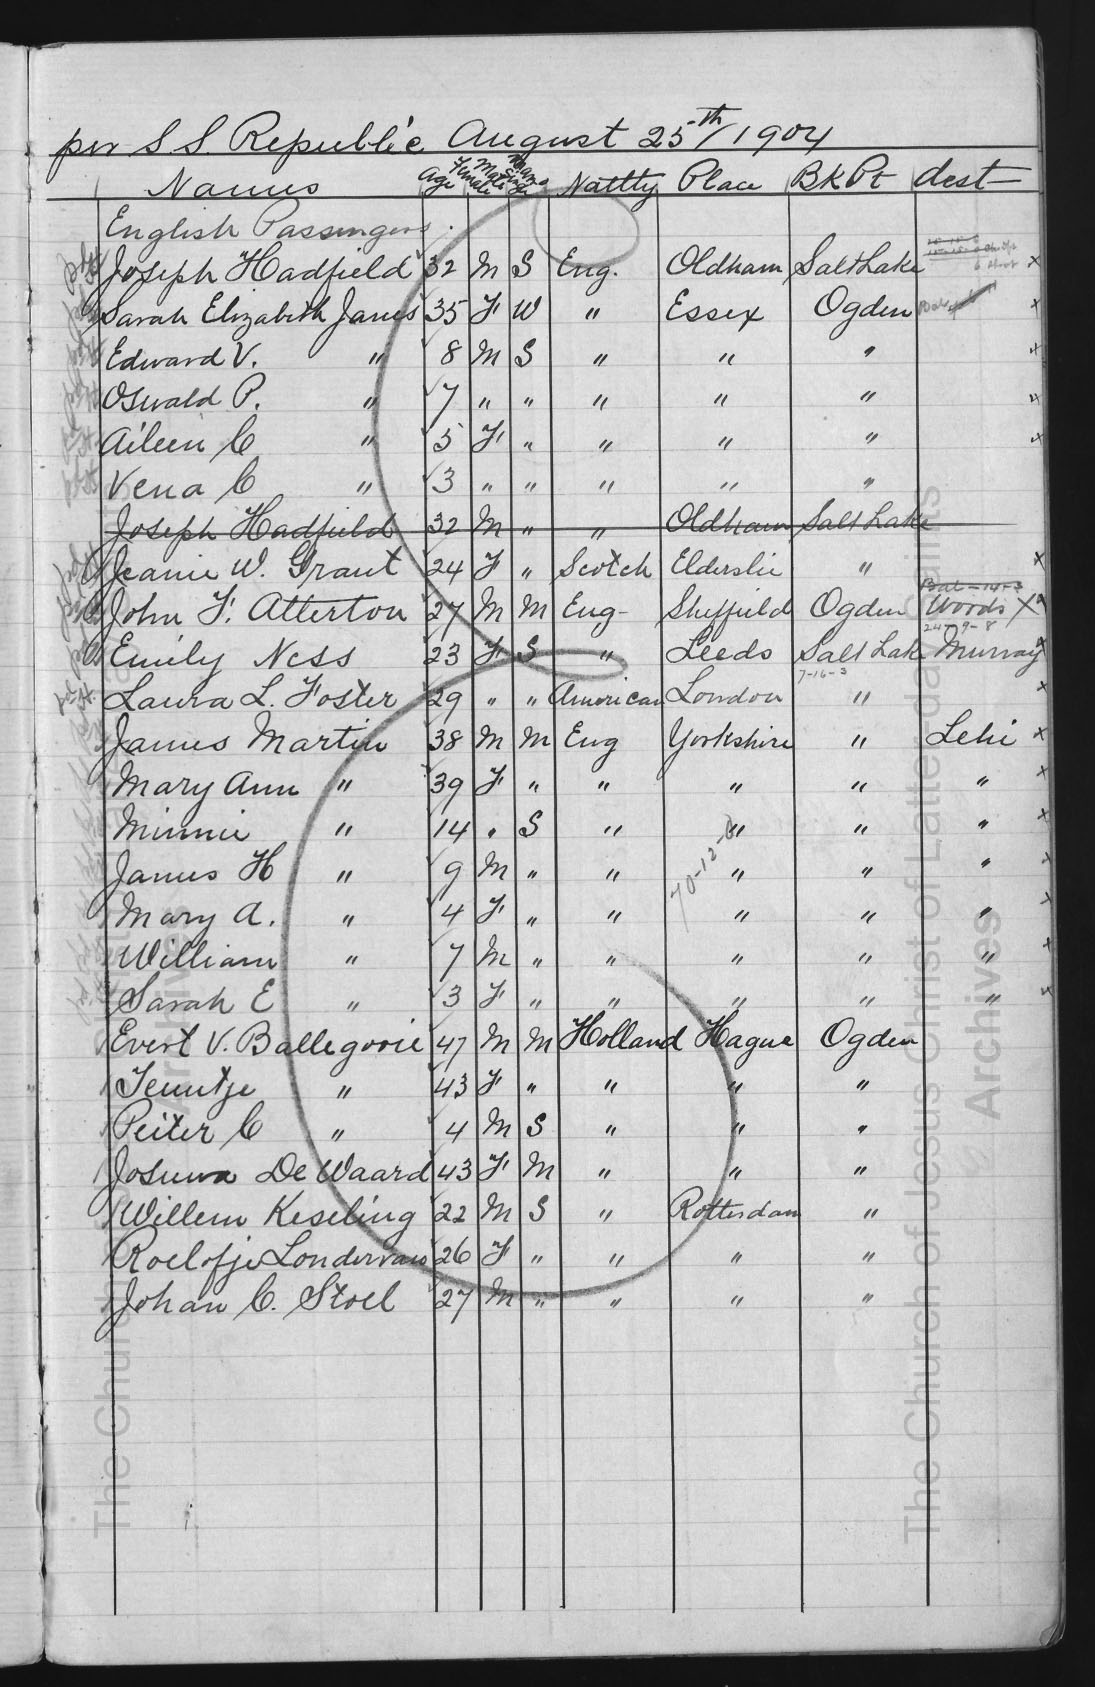 per S.S. Republic August 25th/1904
Names Age Female Male Nattly Place Bk Pt dest
English Passengers.
Joseph Hadfield 32 M S Eng. Oldham Salt Lake x
Sarah Elizabeth James 35 F W " Essex Ogden x
Edward V. " 8 M S " " " x
Oswald P. " 7 " " " " " x
Aileen C " 5 F " " " " x
Vena C " 3 " " " " "
Joseph Hadfield 32 M " " Oldham Salt Lake
Jeanie W. Grant 24 F " Scotch Elderslie " x
John F. Atterton 27 M M Eng- Sheffield Ogden Woods x
24-9-8
Emily Ness 23 F S " Leeds Salt Lake Murray x
7-16-3
Laura L. Foster 29 " " American London " x
James Martin 38 M M Eng Yorkshire " Lehi x
Mary Ann " 39 F " " " " " x
Minnie " 14 " S " " " " x
James H " 9 M " " " " " x
70-12-6
Mary A. " 4 F " " " " " x
William " 7 M " " " " " x
Sarah E " 3 F " " " " " x
Evert V. Ballegooie 47 M M Holland Hague Ogden
Teuntje " 43 F " " " "
Peiter C " 4 M S " " "
Josuwa De Waard 43 F M " " "
Willem Keseling 22 M S " Rotterdam "
Roelofje Londervan 26 F " " " "
Johan C. Stoel 27 M " " " "
The Church of Jesus Christ of Latter-day Saints
Archives